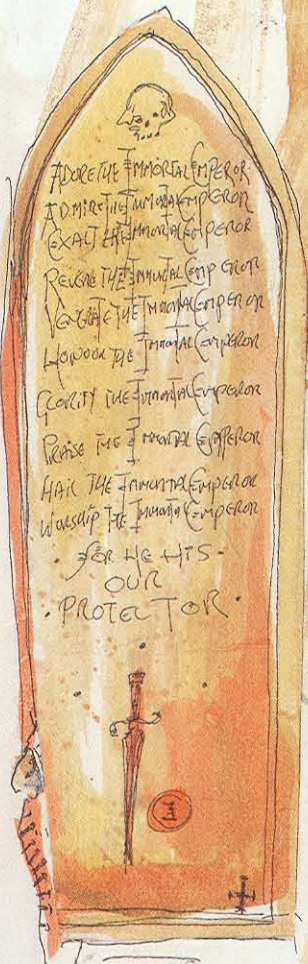 ADORE THE IMMORTAL EMPEROR
ADMIRE THE IMMORTAL EMPEROR
EXALT THE IMMORTAL EMPEROR
REVERE THE IMMORTAL EMPEROR
VENERATE THE IMMORTAL EMPEROR
HONOUR THE IMMORTAL EMPEROR
GLORIFY THE IMMORTAL EMPEROR
PRAISE THE IMMORTAL EMPEROR
HAIL THE IMMORTAL EMPEROR
WORSHIP THE IMMORTAL EMPEROR
· FOR HE HIS ·
OUR
· PROTECTOR ·